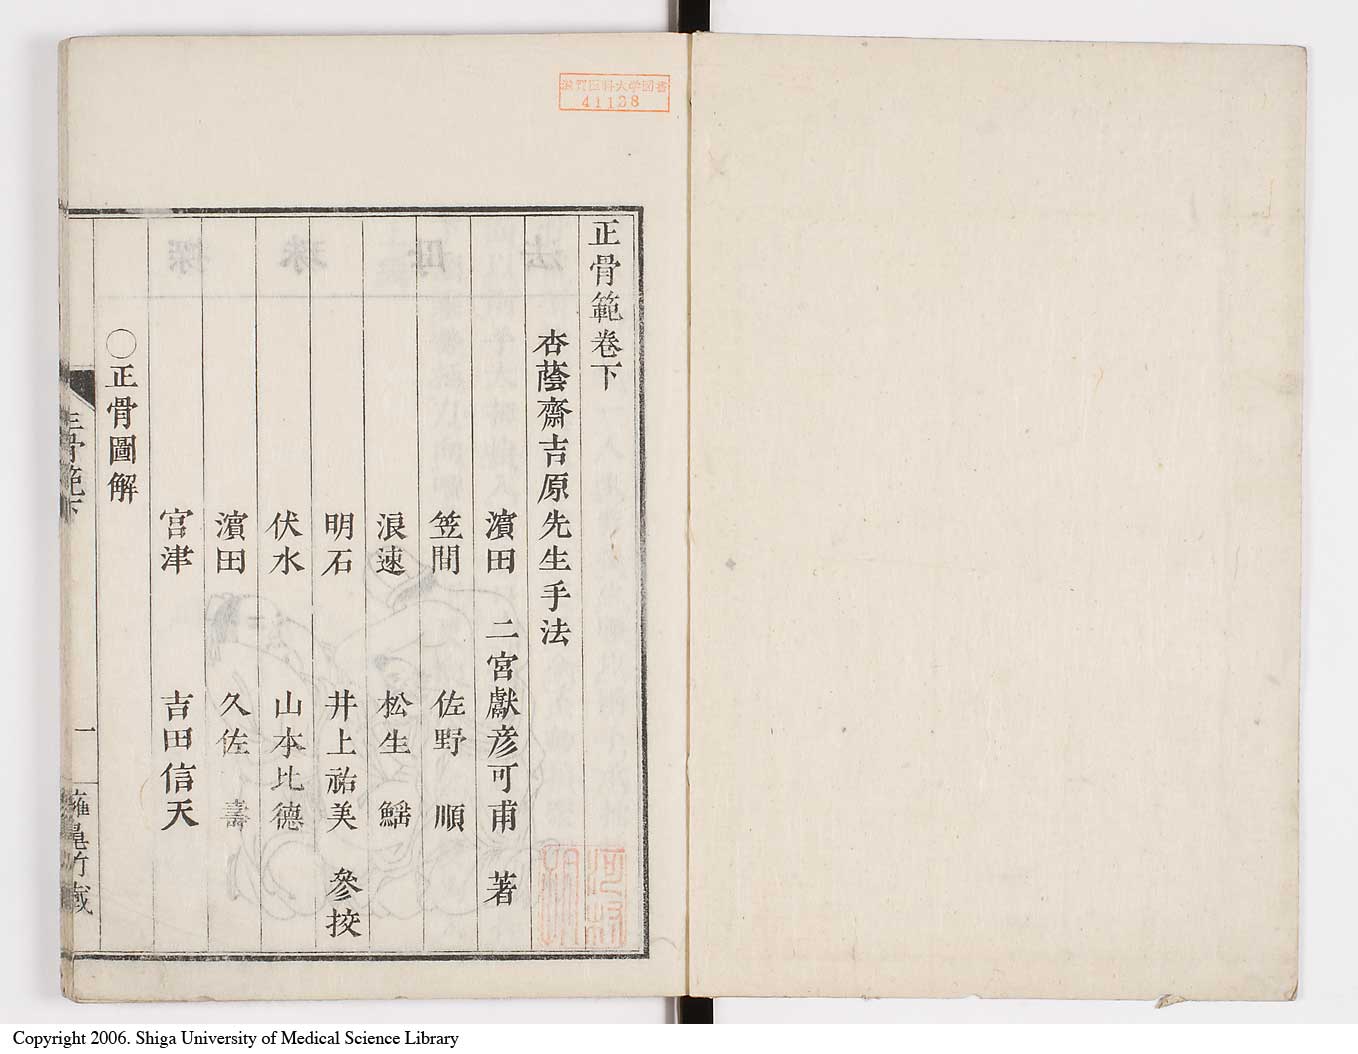 滋賀医科大学図書
41138
正骨範卷下
杏蔭齋吉原先生手法
濱田 二宮獻彦可甫 著
笠間 佐野 順
浪速 松生 鰩
明石 井上祐美 參挍
伏水 山本比德
濱田 久佐 壽
宮津 吉田信天
〇正骨圖解
正骨範下
一
Copyright 2006. Shiga University of Medical Science Library